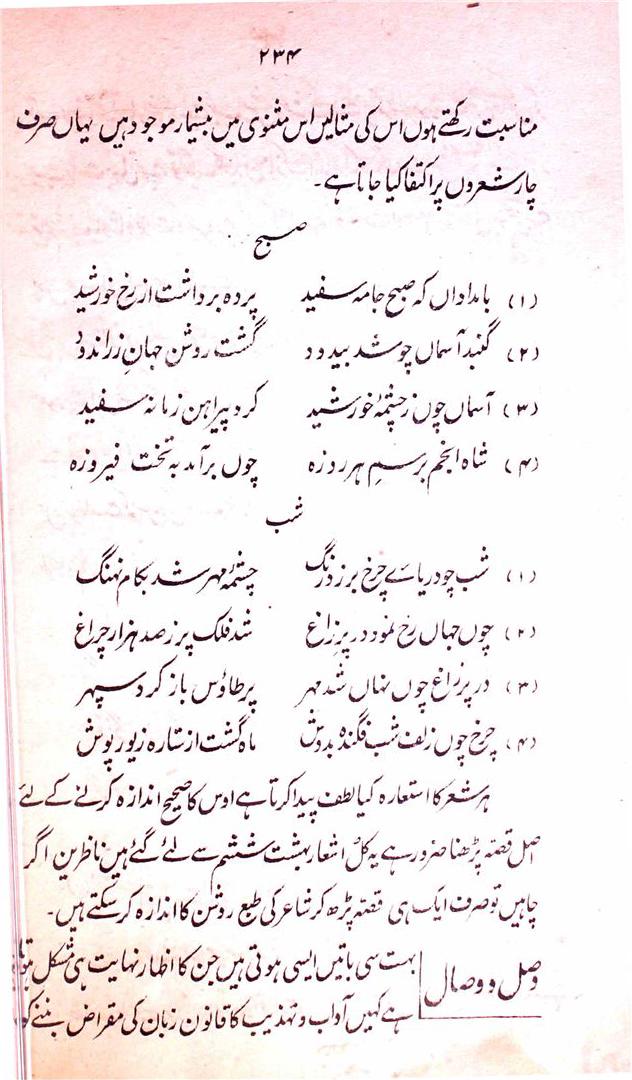 ۲۳۴
مناسبت رکھتے ہوں اس کی مثالیں اس مثنوی میں بیشمار موجود ہیں یہاں صرف
چار شعروں پر اکتفا کیا جاتا ہے۔
صبح
(۱) بامداداں کہ صبح جامہ سفید پردہ برداشت از رخ خورشید
(۲) گنبد آسماں چو شد بیدود گشت روشن جہانِ زر اندود
(۳) آسماں چوں ز چشمۂ خورشید کرد پیراہن زمانہ سفید
(۴) شاہ انجم برسمِ ہر روزہ چوں برآمد بہ تخت فیروزہ
شب
(۱) شب چو دریائے چرخ برزد رنگ چشمۂ مہر شد بکام نہنگ
(۲) چوں جہاں رخ نمود در پرِ زاغ شد فلک پر ز صد ہزار چراغ
(۳) در پر زاغ چوں نہاں شد مہر پر طاؤس باز کرد سپہر
(۴) چرخ چوں زلف شب فگندہ بدوش ماہ گشت از ستارہ زیور پوش
ہر شعر کا استعارہ کیا لطف پیدا کرتا ہے اوس کا صحیح اندازہ کرنے کے لئے
اصل قصہ پڑھنا ضرور ہے یہ کل اشعار بہشت ششم سے لئے گئے ہیں ناظرین اگر
چاہیں تو صرف ایک ہی قصہ پڑھ کر شاعر کی طبع روشن کا اندازہ کر سکتے ہیں۔
وصل و وصال
بہت سی باتیں ایسی ہوتی ہیں جن کا اظہار نہایت ہی مشکل ہوتا
ہے کہیں آداب و تہذیب کا قانون زبان کی مقراض بننے کو